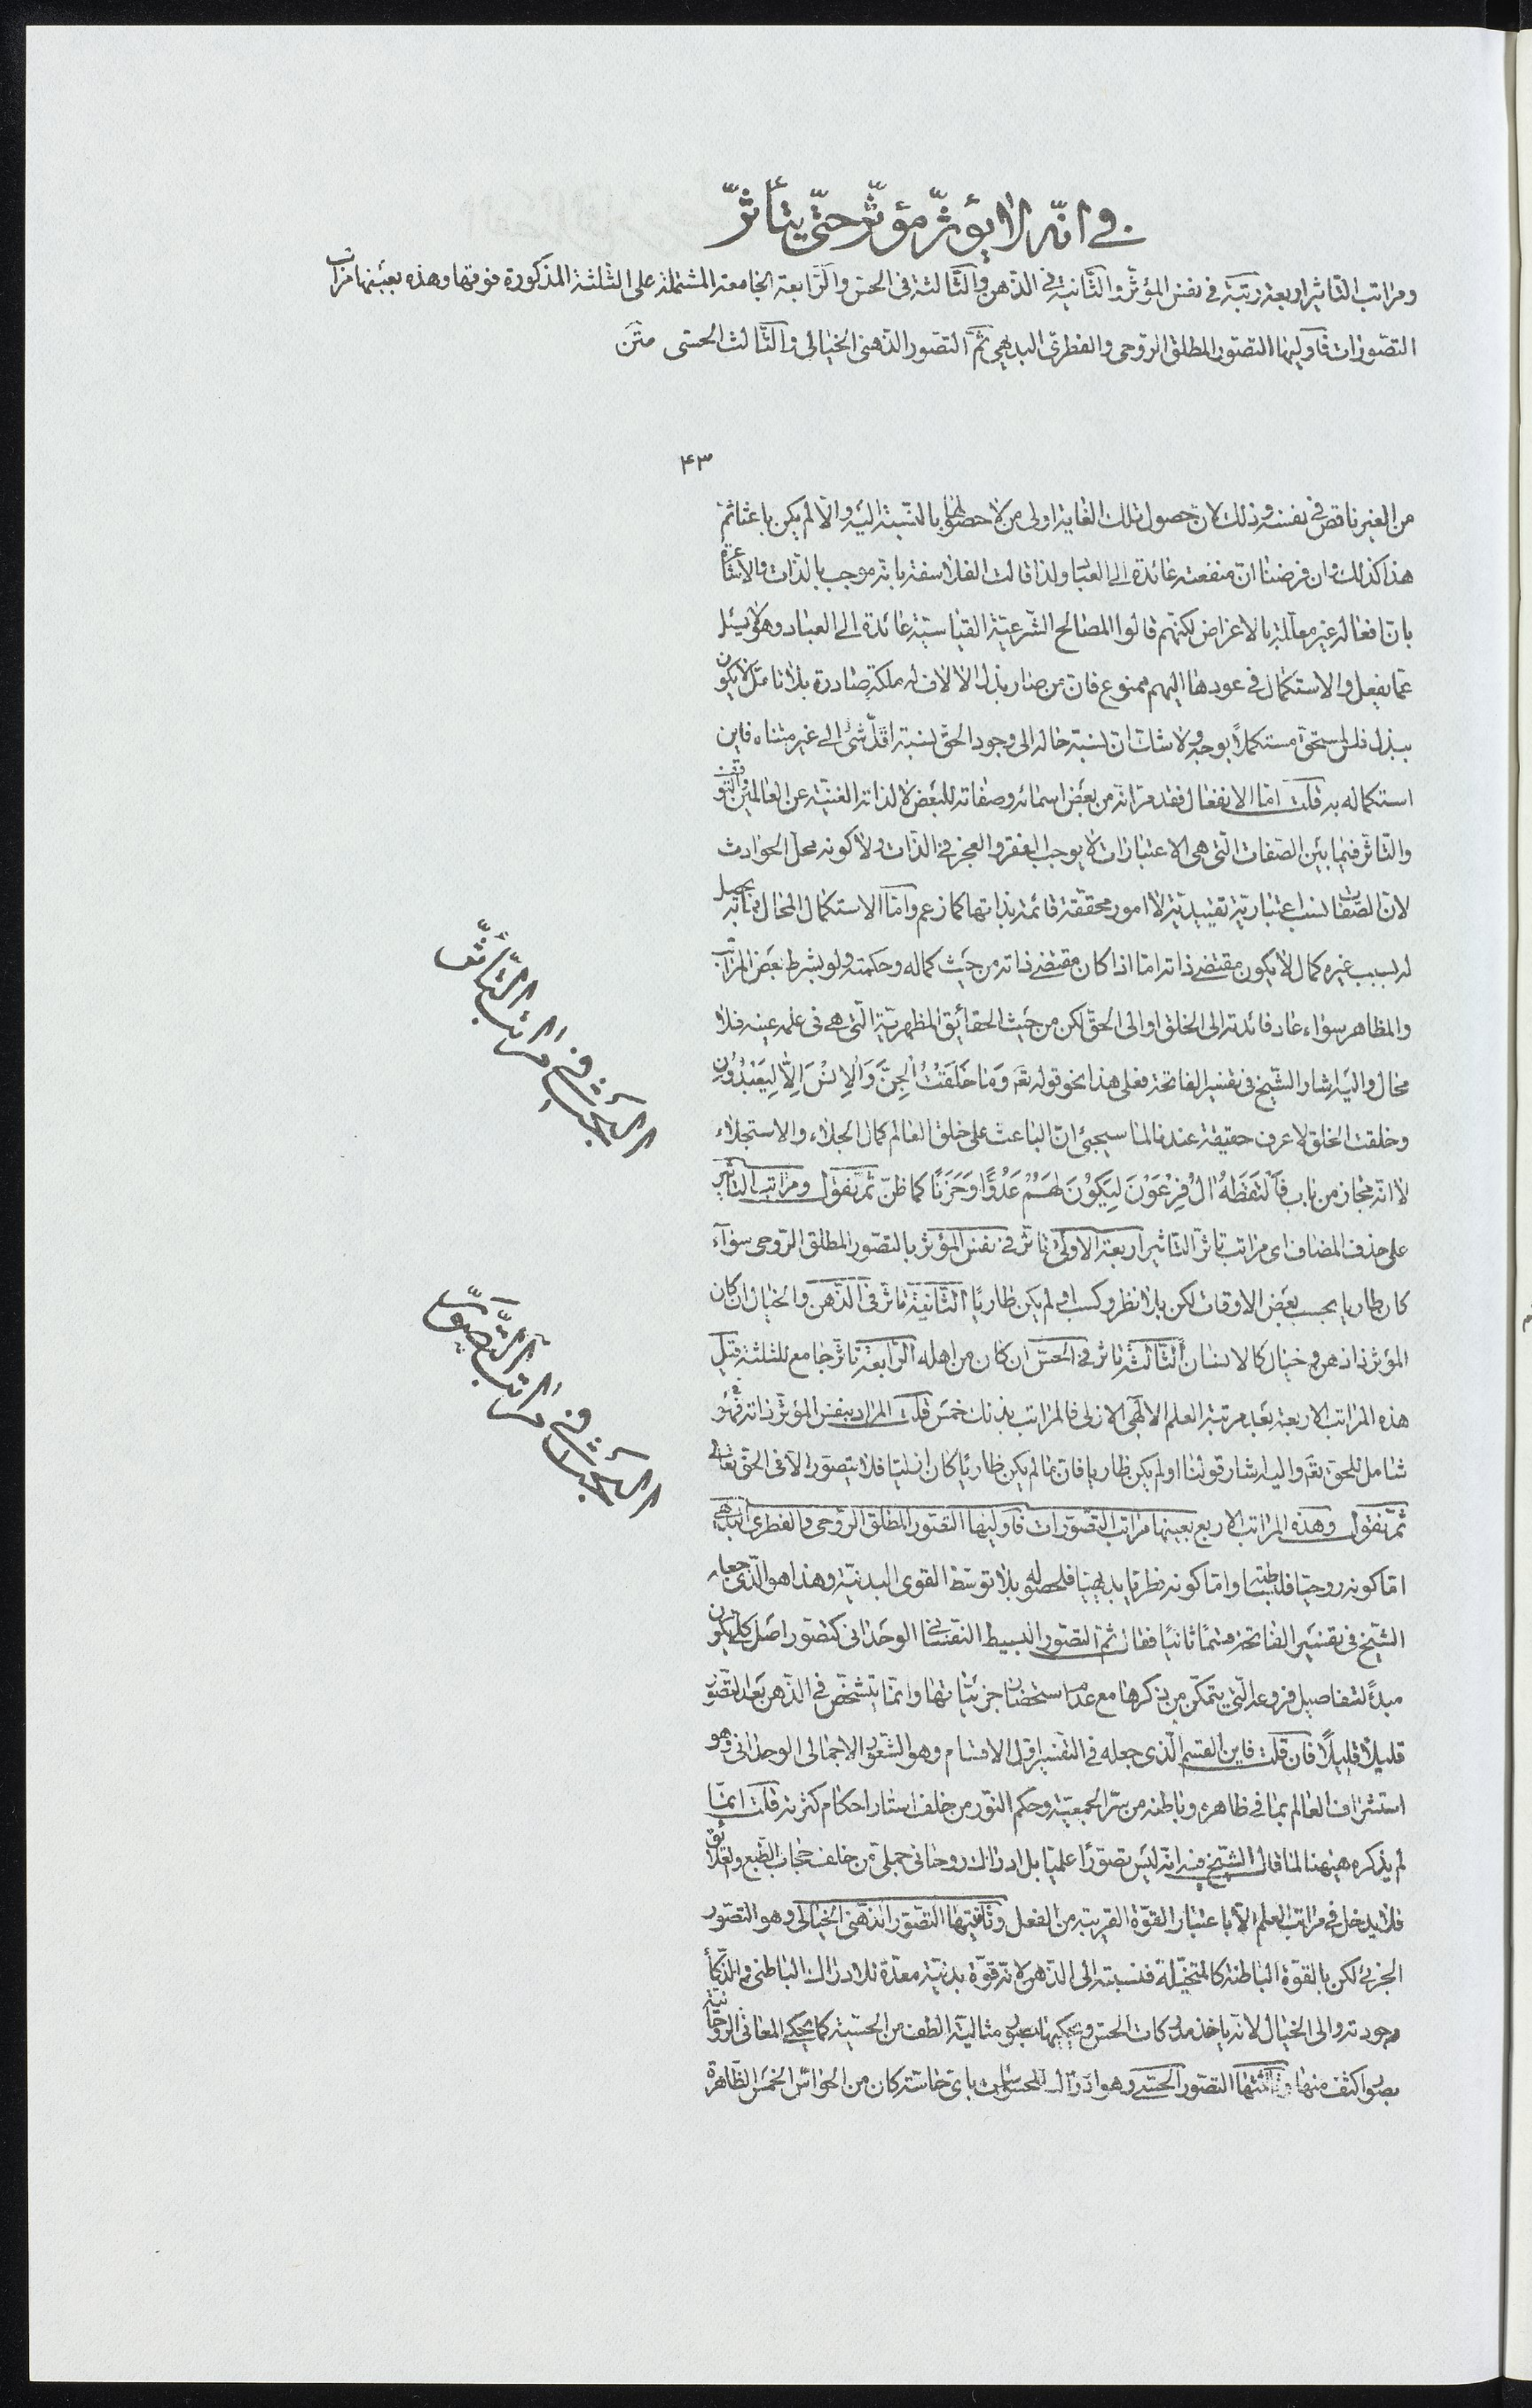 في انّه لا يؤثّر مؤثّر حتّى يتأثّر
ومراتب التاثير اربعة رتبة فى نفس المؤثّر والثّانية فى الذّهن والثّالثة فى الحسّ والرّابعة الجامعة المشتملة على الثّلثة المذكورة فوقها وهذه بعينها مراتب
التصوّرات فاوليها التصوّر المطلق الرّوحى والفطرىّ البديهى ثمّ التصوّر الذّهنى الخيالى والثّالث الحسّى متن
۴۳
من الغير ناقص فى نفسه وذلك لان حصول تلك الغاية اولى من لا حصولها بالنّسبة اليه والّا لم يكن باعثا ثمّ
هذا كذلك وان فرضنا انّ منفعته عائدة الى العباد ولذا قالت الفلاسفة بانّه موجب بالذّات والاشاعرة
بانّ افعاله غير معلّلة بالاغراض لكنّهم قالوا المصالح الشّرعيّة القياسيّة عائدة الى العباد وهو لا يسئل
عمّا يفعل والاستكمال فى عودها اليهم ممنوع فانّ من صار بذل الالاف له ملكة صادرة بلا تامّل لا يكون
ببذل فلس لمستحقّ مستكملاً بوجه ولا شك ان نسبة خاله الى وجود الحقّ نسبة اقلّ شئ الى غير متناه فاين
استكماله به قلت امّا الانفعال فقد مرّ انّه من بعض اسمائه وصفاته للبعض لا لذاته الغنيّة عن العالمين والتّوقّف
والتّاثّر فيما بين الصّفات الّتى هى الاعتبارات لا يوجب الفقر والعجز فى الذّات ولا كونه محلّ الحوادث
لانّ الصّفات نسب اعتبارية تقييديّة لا امور محقّقة قائمة بذاتها كما زعم وامّا الاستكمال المحال فبانّه يحصل
له بسبب غيره كمال لا يكون مقتضى ذاته امّا اذا كان مقتضى ذاته من حيث كماله وحكمته ولو بشرط بعض المراتب
والمظاهر سواء عاد فائدته الى الخلق او الى الحقّ لكن من حيث الحقائق المظهريّة الّتى هى فى علمه عينه فلا
محال واليه اشار الشّيخ فى تفسير الفاتحة فعلى هذا نحو قوله تعَ وَمَا خَلَقْتُ الْجِنَّ وَالْاِنْسَ اِلَّا لِيَعْبُدُونِ
وخلقت الخلق لاعرف حقيقة عندنا لما سيجئ انّ الباعث على خلق العالم كمال الجلاء والاستجلاء
لا انّه مجاز من باب فَالْتَقَطَهُ اٰلُ فِرْعَوْنَ لِيَكُوْنَ لَهُمْ عَدُوًّا وَحَزَنًا كما ظنّ ثمّ نقول ومراتب التّاثير
على حذف المضاف اى مراتب تاثّر التّاثير اربعة الاولى تاثّر فى نفس المؤثّر بالتصوّر المطلق الرّوحى سواء
كان طاريا بحسب بعض الاوقات لكن بلا نظر وكسب او لم يكن طاريًا الثّانية تاثّر فى الذّهن والخيال ان كان
المؤثّر ذا ذهن وخيال كالانسان الثّالثة تاثّر فى الحسّ ان كان من اهله الرّابعة تاثّر جامع للثلثة قبل
هذه المراتب الاربعة بعد مرتبة العلم الالٰهى الازلى فالمراتب بذلك خمس قلت المراد بنفس المؤثّر ذاته فهو
شامل للحقّ تعَ واليه اشار قولنا او لم يكن طاريا فانّ ما لم يكن طاريًا كان ازليّا فلا يتصوّر الّا فى الحقّ تعالى
ثمّ نقول وهذه المراتب الاربع بعينها مراتب التّصوّرات فاوليها التصوّر المطلق الرّوحى والفطرى البديهى
امّا كونه روحيّا فلبساطته وامّا كونه فطريّا بديهيّا فلحصوله بلا توسّط القوى البدنيّة وهذا هو الّذى جعله
الشّيخ فى تفسير الفاتحة قسمًا ثانيًا فقال ثمّ التصوّر البسيط النّفسانى الوحدانى كتصوّر اصل كلّى يكون
مبدءً لتفاصيل فروعه الّتى يتمكّن من ذكرها مع عدم استحضار جزئيّاتها وانّما يتشخّص فى الذّهن بعد التّصوّر
قليلًا قليلًا فان قلت فاين القسم الّذى جعله فى التّفسير اوّل الاقسام وهو الشّعور الاجمالى الوحدانى وهو
استشراف العالم بما فى ظاهره وباطنه من سرّ الجمعيّة وحكم النّور من خلف استار احكام كثرته قلت انّما
لم يذكره هيهنا لما قال الشّيخ فيه انّه ليس تصوّرًا علميّا بل ادراك روحانى جملىّ من خلف حجاب الطّبع والعلائق
فلا يدخل فى مراتب العلم الّا باعتبار القوّة القريبة من الفعل وثانيتها التصوّر الذّهنى الخيالى وهو التصوّر
الجزئى لكن بالقوّة الباطنة كالمتخيّلة فنسبته الى الذّهن لانّه قوّة بدنيّة معدّة للادراك الباطنى والذّكاء
جودته والى الخيال لانّه ياخذ مدركات الحسّ ويحكيها بصور مثاليّة الطف من الحسّيّة كما يحكى المعانى الرّوحانيّة
بصور اكثف منها وثالثتها التصوّر الحسّى وهو ادراك المحسوسات باىّ حاسّة كان من الحواسّ الخمس الظّاهرة
البحث فى مراتب التّأثّر
البحث فى مراتب التّصوّر